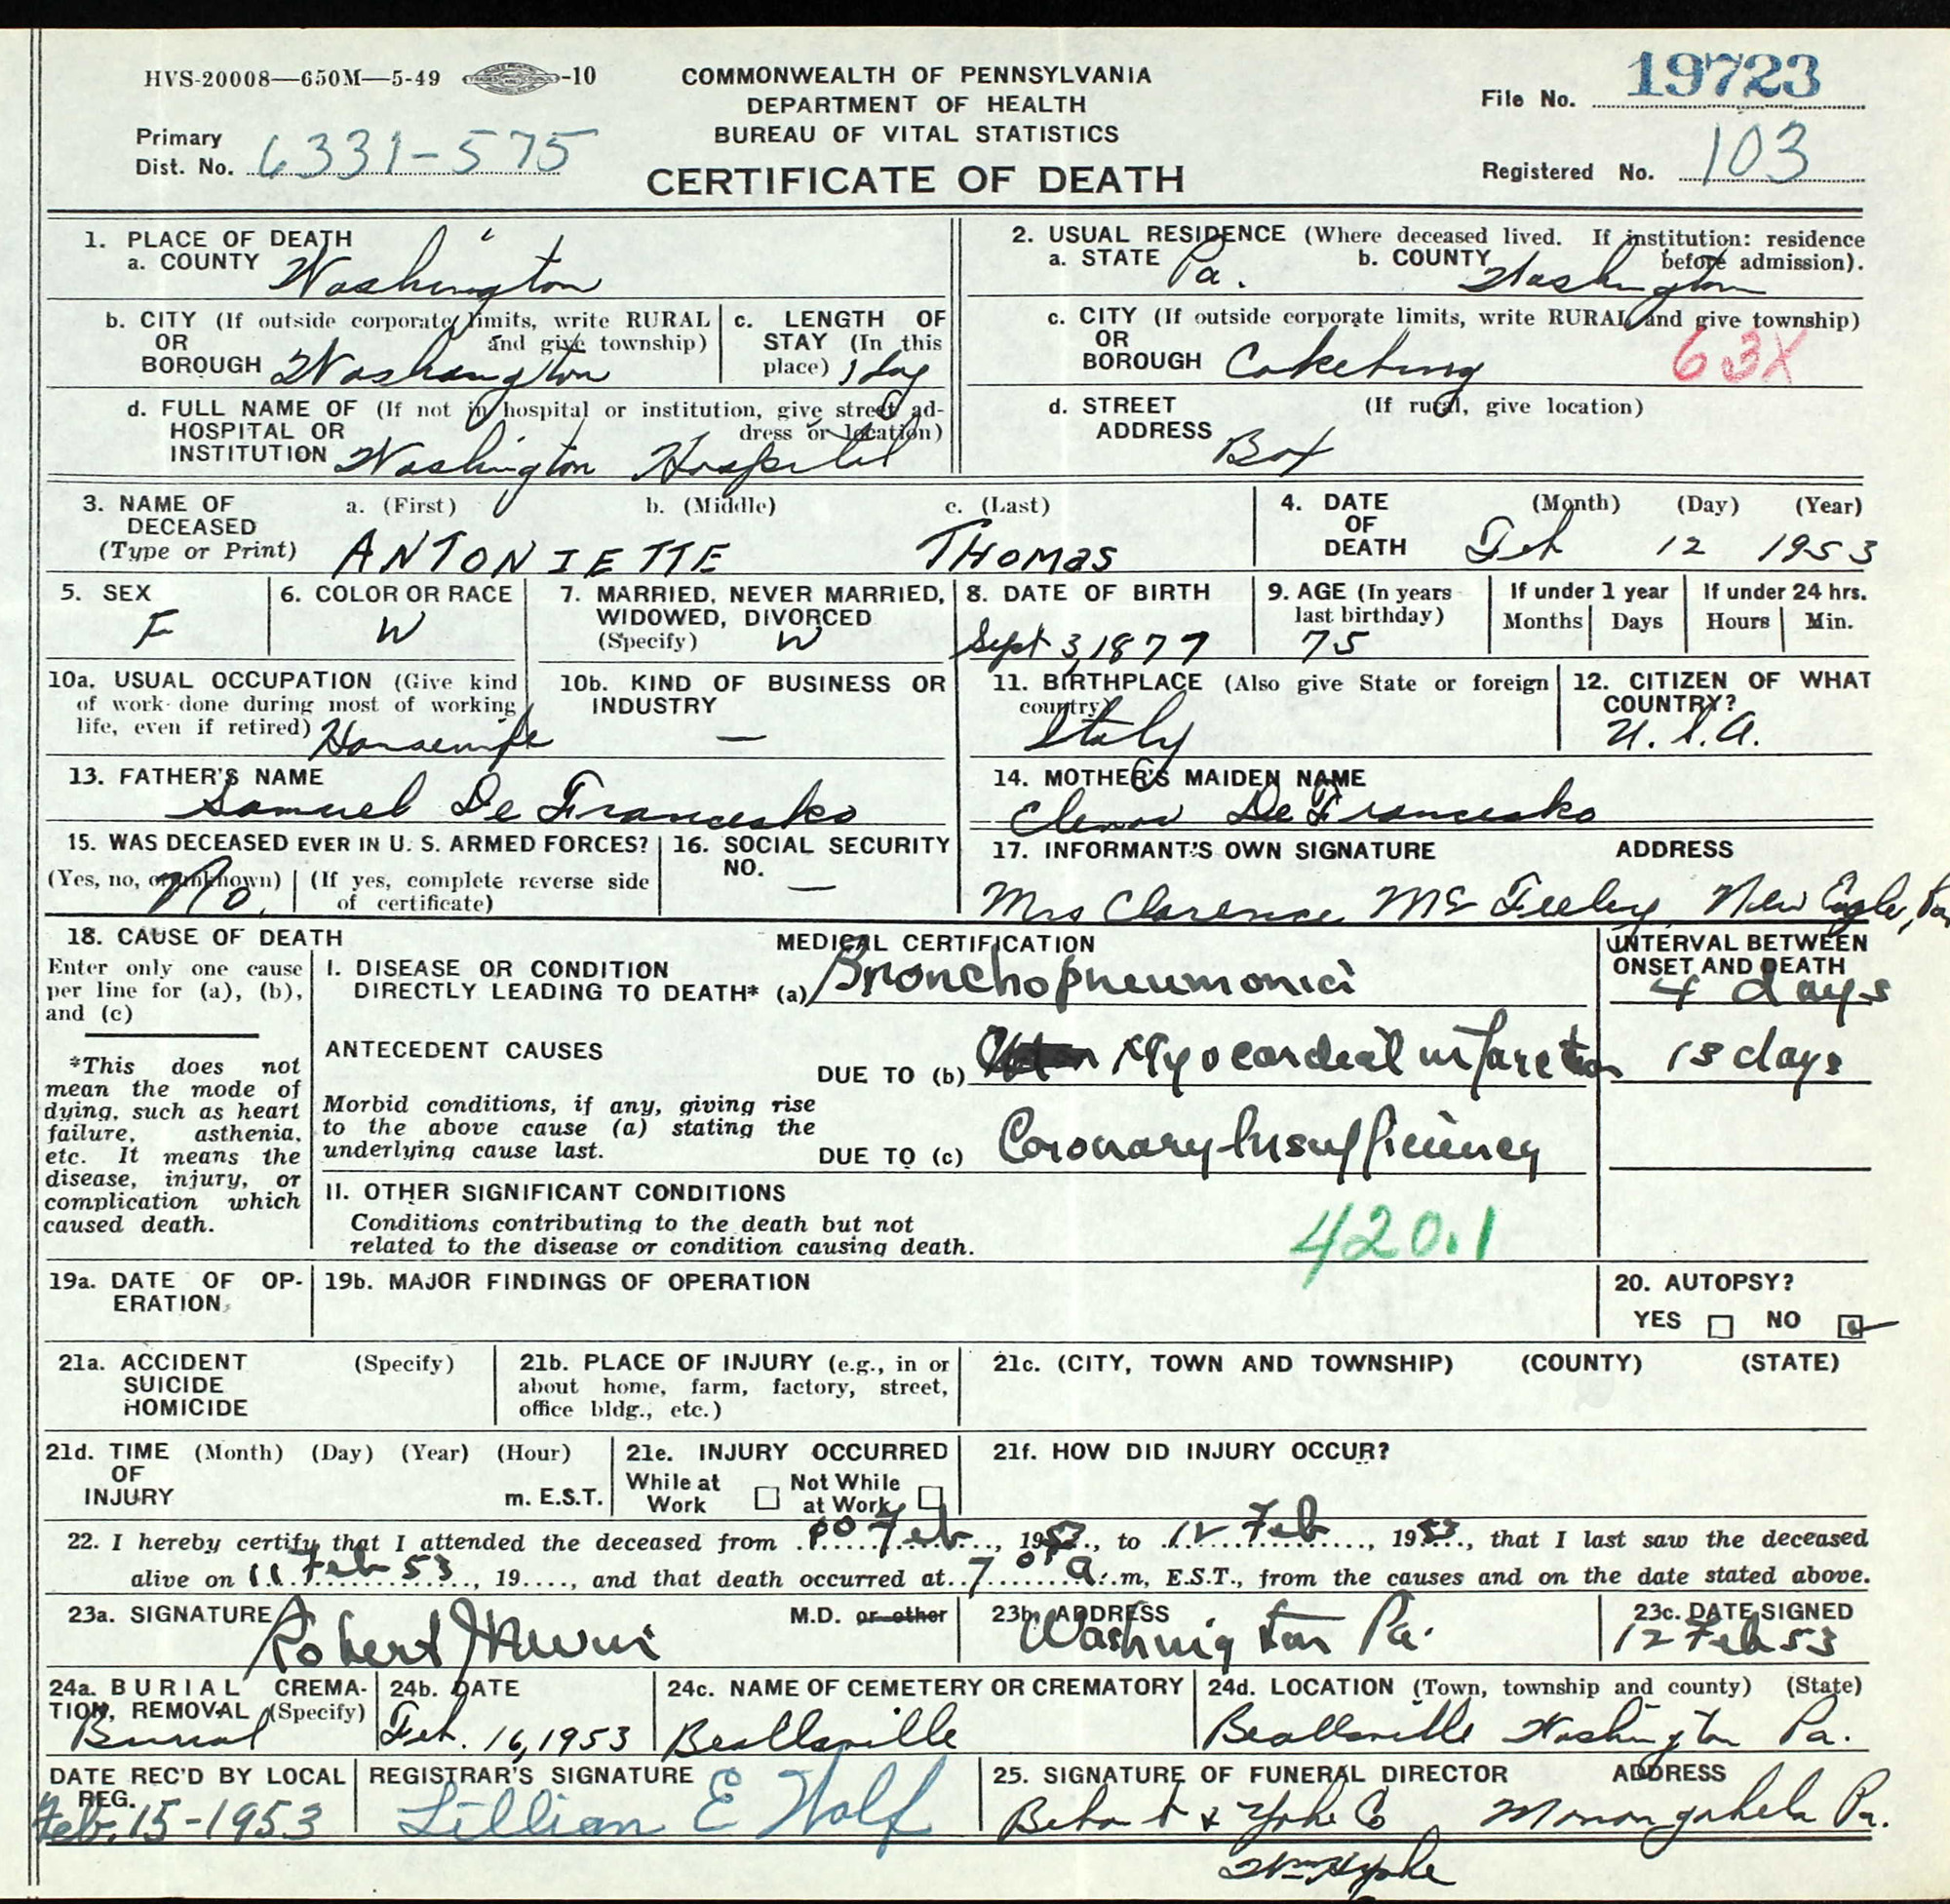 HVS-20008—650M—5-49 -10
COMMONWEALTH OF PENNSYLVANIA
DEPARTMENT OF HEALTH
BUREAU OF VITAL STATISTICS
CERTIFICATE OF DEATH
File No. 19723
Primary Dist. No. 6331-575
Registered No. 103
1. PLACE OF DEATH
a. COUNTY Washington
b. CITY (If outside corporate limits, write RURAL and give township)
OR
BOROUGH Washington
c. LENGTH OF STAY (In this place) 1 day
d. FULL NAME OF (If not in hospital or institution, give street address or location)
HOSPITAL OR
INSTITUTION Washington Hospital
2. USUAL RESIDENCE (Where deceased lived. If institution: residence before admission).
a. STATE Pa. b. COUNTY Washington
c. CITY (If outside corporate limits, write RURAL and give township)
OR
BOROUGH Cokeburg 63X
d. STREET (If rural, give location)
ADDRESS Box
3. NAME OF DECEASED (Type or Print)
a. (First) b. (Middle) c. (Last)
ANTONIETTE THOMAS
4. DATE OF DEATH (Month) (Day) (Year)
Feb 12 1953
5. SEX
F
6. COLOR OR RACE
W
7. MARRIED, NEVER MARRIED, WIDOWED, DIVORCED (Specify)
W
8. DATE OF BIRTH
Sept 3, 1877
9. AGE (In years last birthday)
75
If under 1 year
Months Days
If under 24 hrs.
Hours Min.
10a. USUAL OCCUPATION (Give kind of work done during most of working life, even if retired) Housewife
10b. KIND OF BUSINESS OR INDUSTRY
—
11. BIRTHPLACE (Also give State or foreign country)
Italy
12. CITIZEN OF WHAT COUNTRY?
U.S.A.
13. FATHER'S NAME
Samuel De Francesko
14. MOTHER'S MAIDEN NAME
Elenor De Francesko
15. WAS DECEASED EVER IN U. S. ARMED FORCES?
(Yes, no, or unknown) (If yes, complete reverse side of certificate)
No.
16. SOCIAL SECURITY NO.
—
17. INFORMANT'S OWN SIGNATURE ADDRESS
Mrs Clarence McFeeley New Eagle, Pa
18. CAUSE OF DEATH
Enter only one cause per line for (a), (b), and (c)
*This does not mean the mode of dying, such as heart failure, asthenia, etc. It means the disease, injury, or complication which caused death.
MEDICAL CERTIFICATION
I. DISEASE OR CONDITION DIRECTLY LEADING TO DEATH* (a) Bronchopneumonia
INTERVAL BETWEEN ONSET AND DEATH
4 days
ANTECEDENT CAUSES
DUE TO (b) Myocardial infarction 13 days
Morbid conditions, if any, giving rise to the above cause (a) stating the underlying cause last.
DUE TO (c) Coronary Insufficiency
II. OTHER SIGNIFICANT CONDITIONS
Conditions contributing to the death but not related to the disease or condition causing death.
420.1
19a. DATE OF OPERATION
19b. MAJOR FINDINGS OF OPERATION
20. AUTOPSY?
YES NO
21a. ACCIDENT SUICIDE HOMICIDE (Specify)
21b. PLACE OF INJURY (e.g., in or about home, farm, factory, street, office bldg., etc.)
21c. (CITY, TOWN AND TOWNSHIP) (COUNTY) (STATE)
21d. TIME OF INJURY (Month) (Day) (Year) (Hour) m. E.S.T.
21e. INJURY OCCURRED
While at Work Not While at Work
21f. HOW DID INJURY OCCUR?
22. I hereby certify that I attended the deceased from Feb, 1953, to 12 Feb, 1953, that I last saw the deceased
alive on 11 Feb 53, 19...., and that death occurred at 7 a.m, E.S.T., from the causes and on the date stated above.
23a. SIGNATURE M.D. or other
Robert
23b. ADDRESS
Washington Pa.
23c. DATE SIGNED
12 Feb 53
24a. BURIAL CREMATION, REMOVAL (Specify)
Burial
24b. DATE
Feb. 16, 1953
24c. NAME OF CEMETERY OR CREMATORY
Beallsville
24d. LOCATION (Town, township and county) (State)
Beallsville Washington Pa.
DATE REC'D BY LOCAL REG.
Feb. 15-1953
REGISTRAR'S SIGNATURE
Lillian E Wolf
25. SIGNATURE OF FUNERAL DIRECTOR ADDRESS
& Yohe Co Monongahela Pa.
Yohe